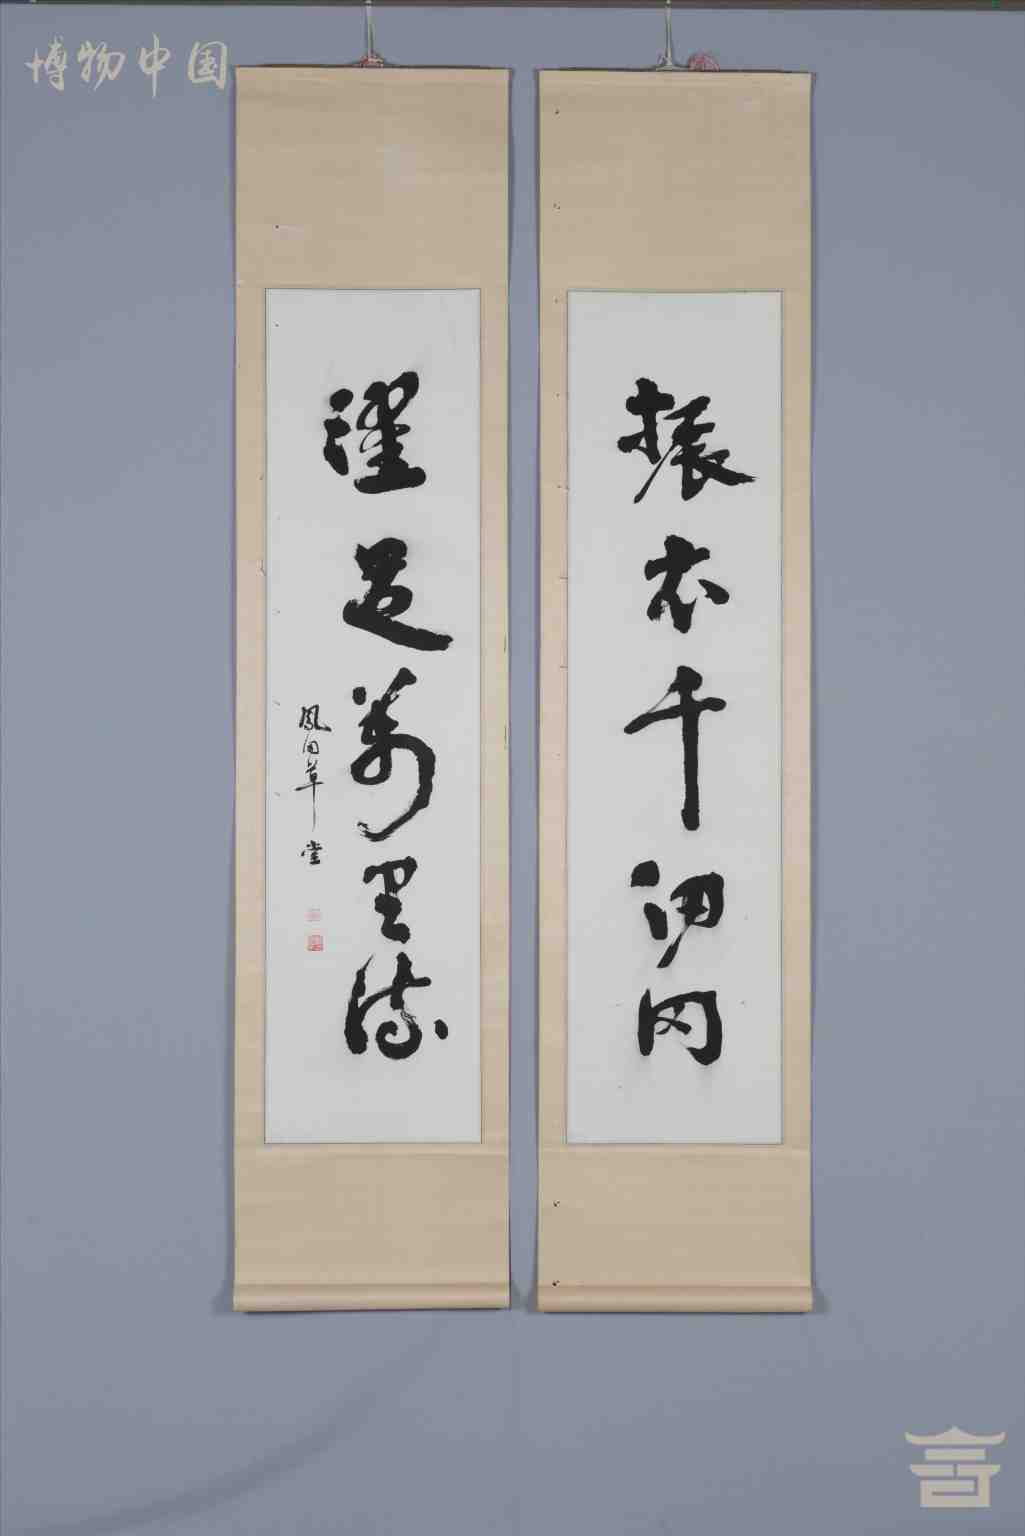 博物中国
振衣千仞冈
濯足万里流
凤田草堂